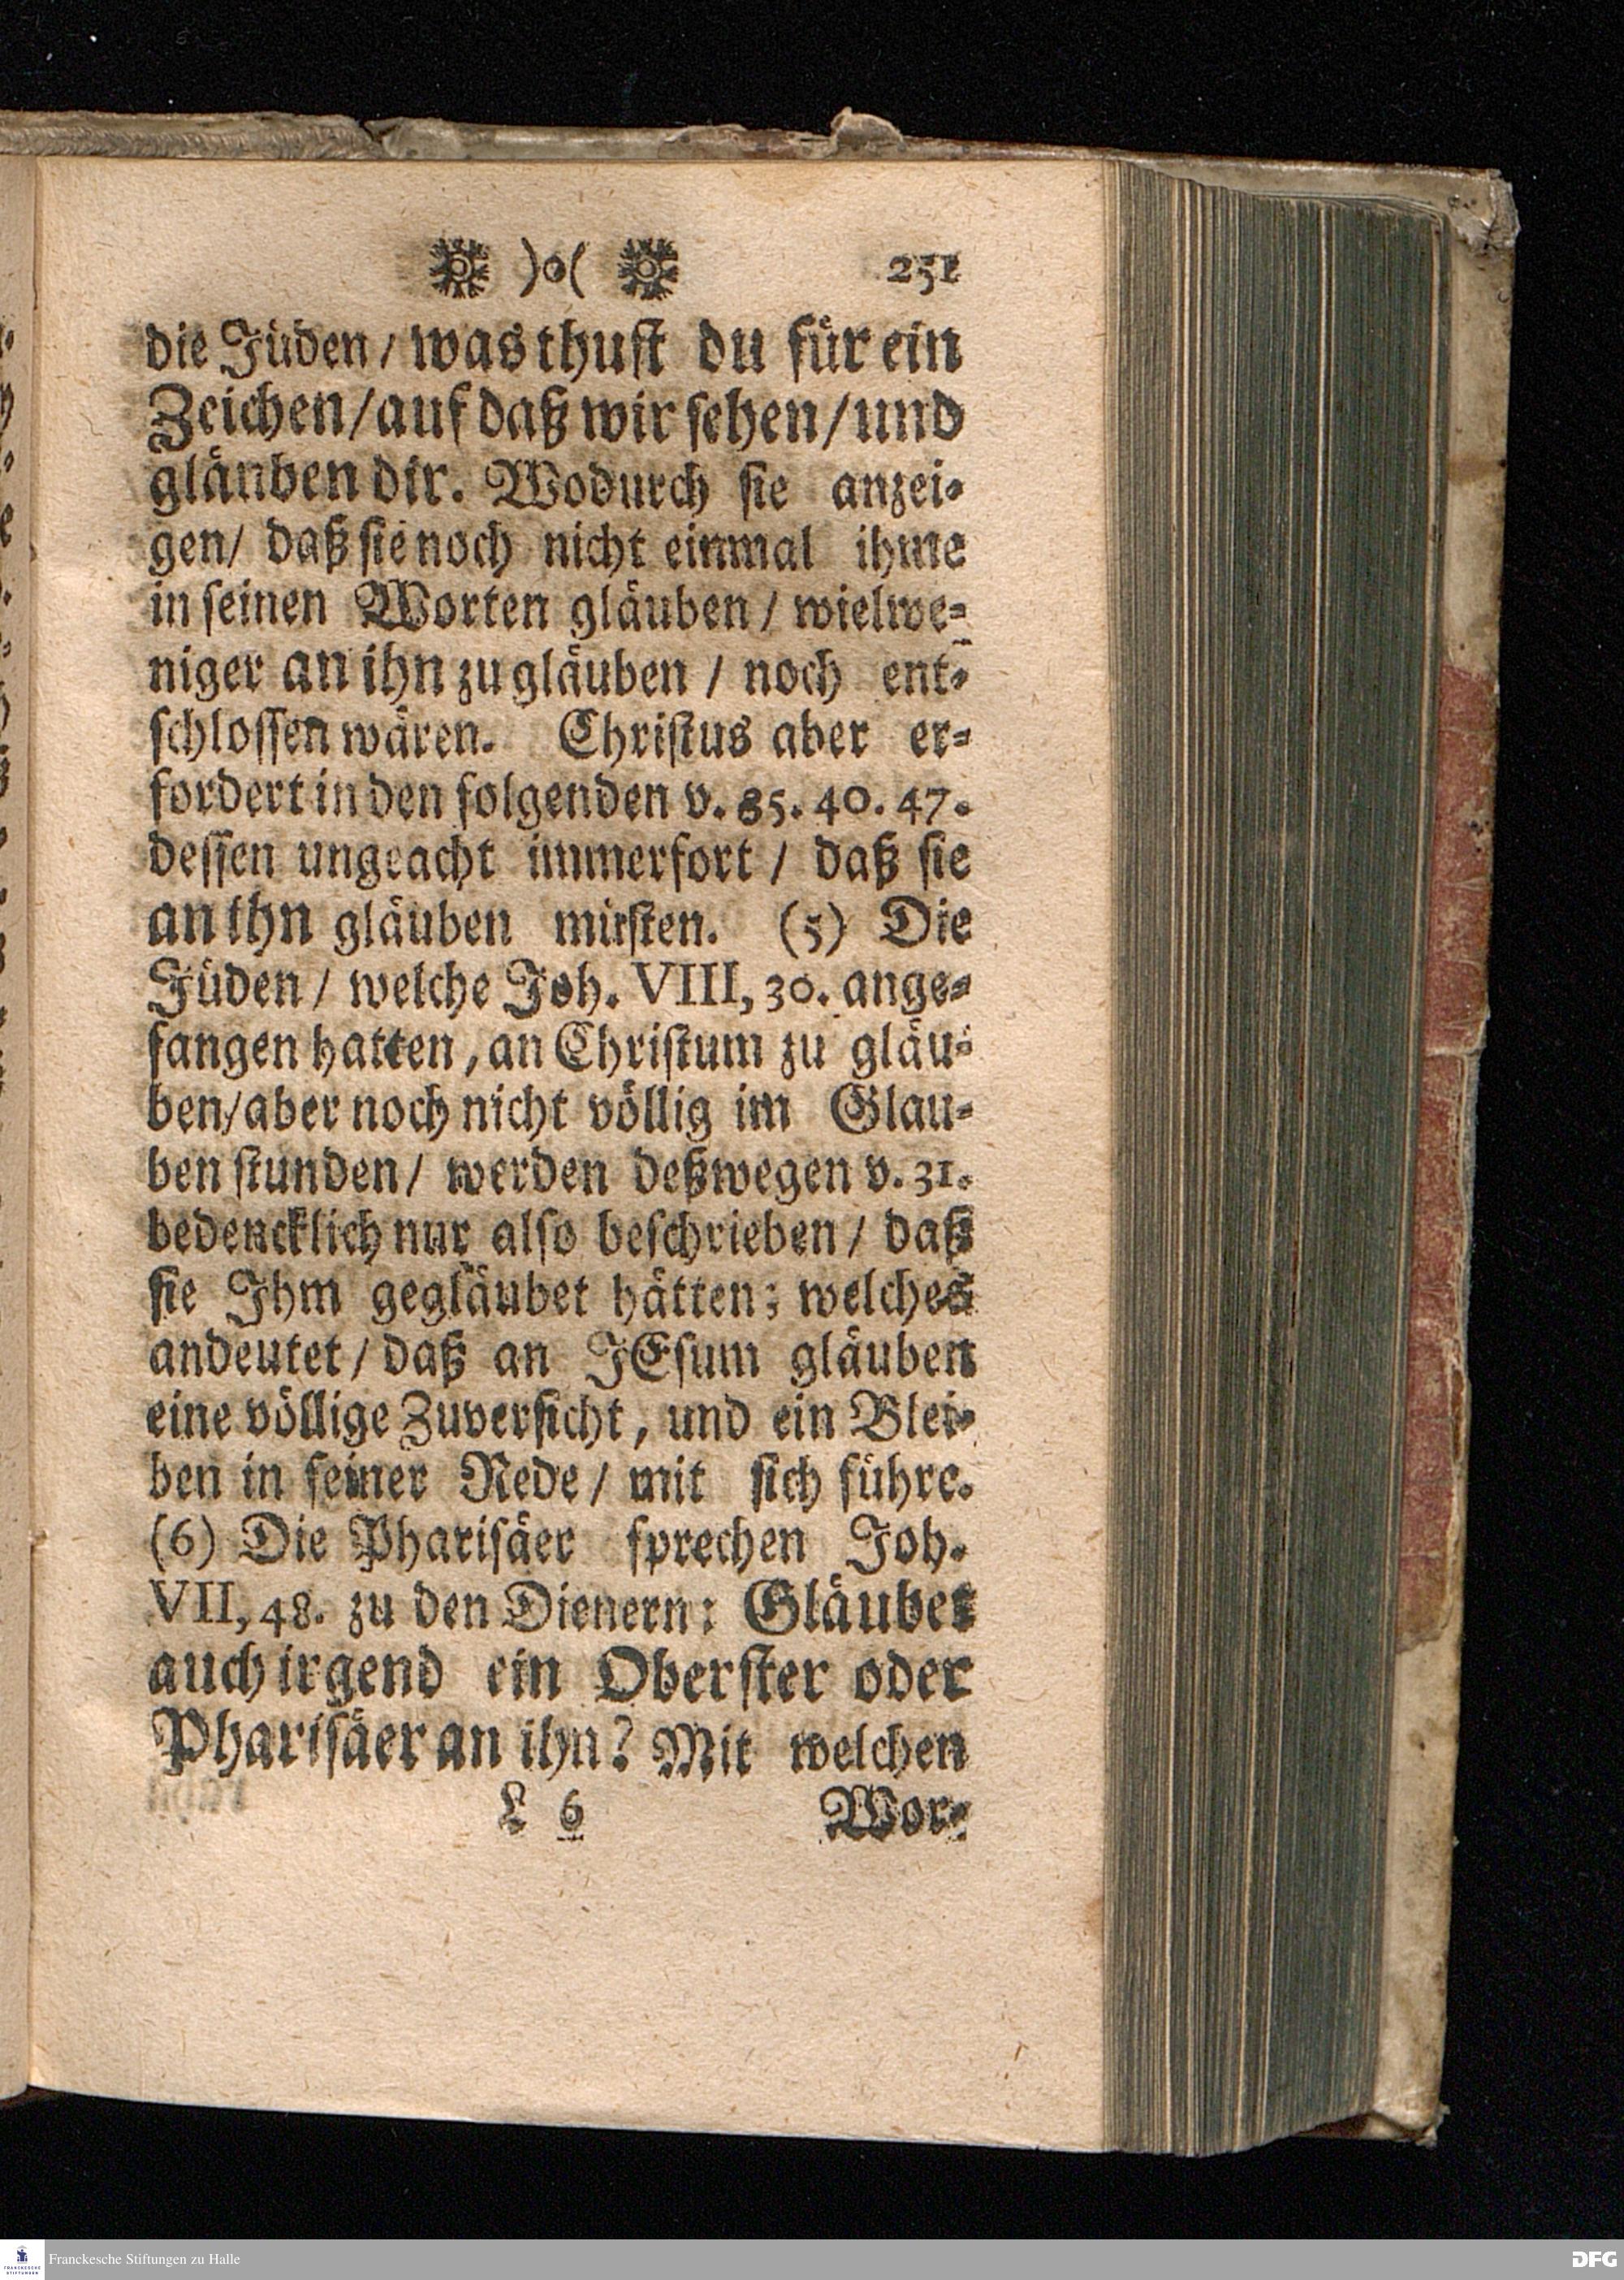 )o( 251
die Jüden / was thust du für ein
Zeichen / auf daß wir sehen / und
gläuben dir. Wodurch sie anzei-
gen / daß sie noch nicht einmal ihme
in seinen Worten gläuben / wielwe-
niger an ihn zu gläuben / noch ent-
schlossen wären. Christus aber er-
fordert in den folgenden v. 35. 40. 47.
dessen ungeacht immerfort / daß sie
an ihn gläuben müsten. (5) Die
Jüden / welche Joh. VIII, 30. ange-
fangen hatten, an Christum zu gläu-
ben / aber noch nicht völlig im Glau-
ben stunden / werden deßwegen v. 31.
bedencklich nur also beschrieben / daß
sie Ihm gegläubet hätten; welches
andeutet / daß an JEsum gläuben
eine völlige Zuversicht, und ein Blei-
ben in seiner Rede / mit sich führe.
(6) Die Pharisäer sprechen Joh.
VII, 48. zu den Dienern: Gläubet
auch irgend ein Oberster oder
Pharisäer an ihn? Mit welchen
L 6 Wor-
Franckesche Stiftungen zu Halle
DFG